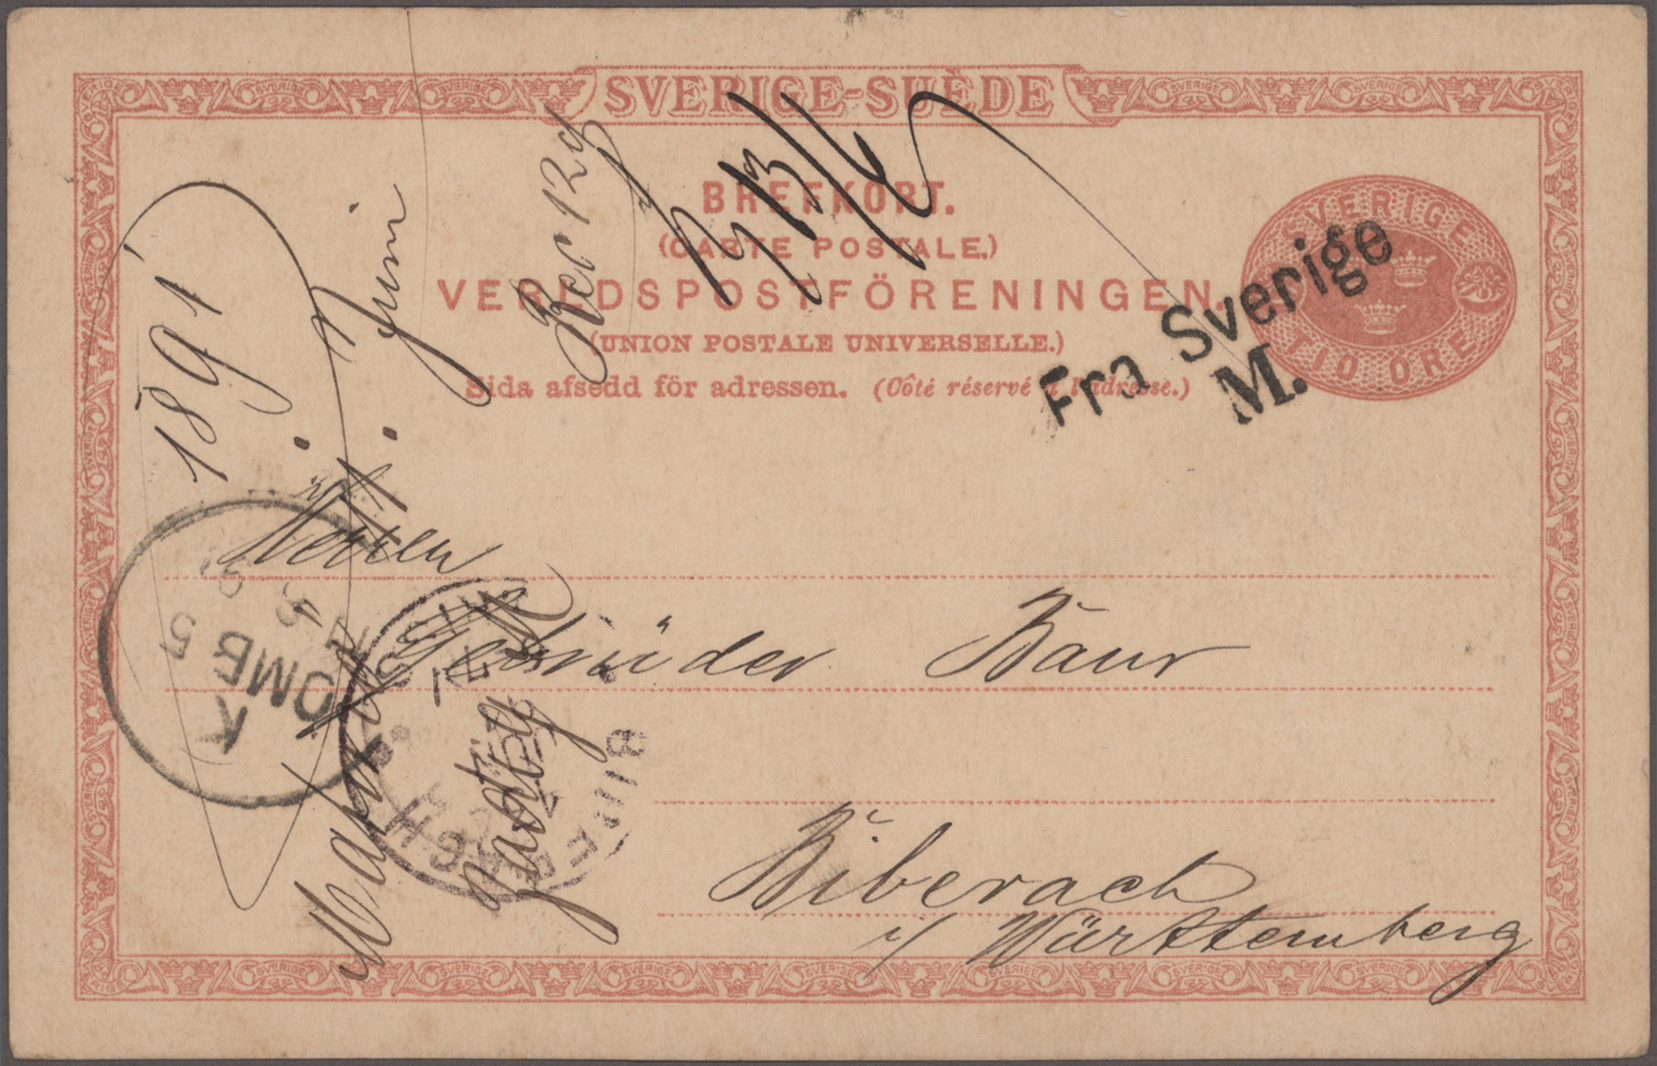 SVERIGE-SUÈDE
BREFKORT.
(CARTE POSTALE.)
VERLDSPOSTFÖRENINGEN.
(UNION POSTALE UNIVERSELLE.)
Sida afsedd för adressen. (Côté réservé à l'adresse.)
SVERIGE
TIO ÖRE
Fra Sverige
M.
1891
Juni
13/6
K
OMB 5
Herren
Gebrüder Baur
Biberach
i/ Württemberg